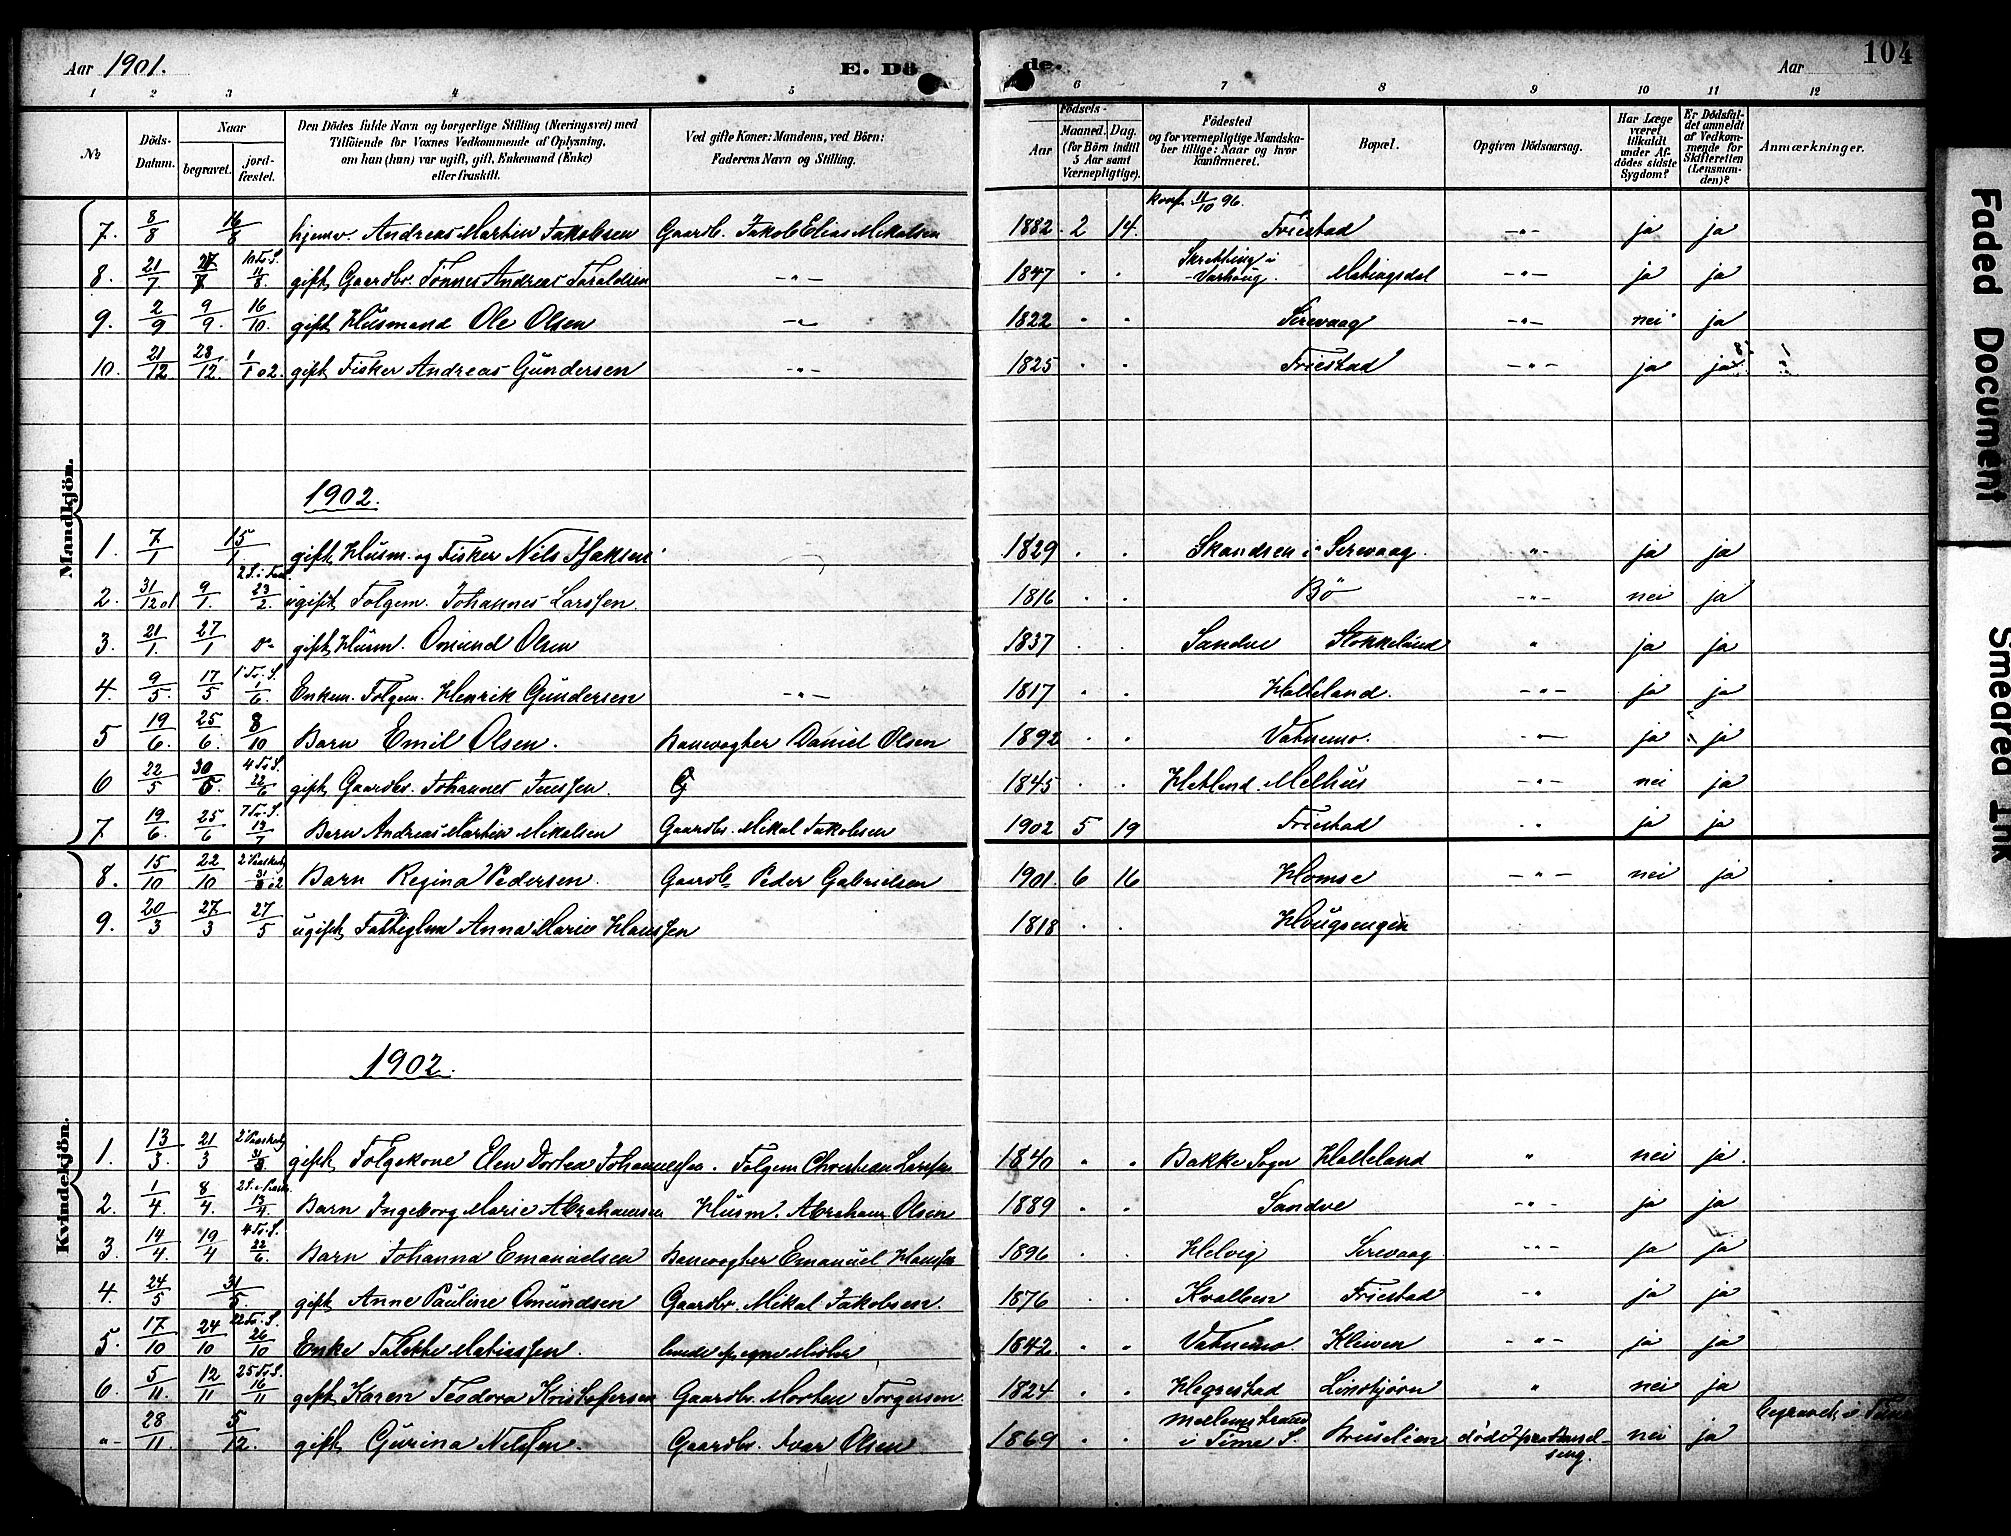 Aar 1901.
E. Dö
de.
Aar
104
1 2 3 4 5 6 7 8 9 10 11 12
№
Döds-Datum.
Naar
begravet.
jord-fæstet.
Den Dödes fulde Navn og borgerlige Stilling (Næringsvei) med
Tilföiende for Voxnes Vedkommende af Oplysning,
om han (hun) var ugift, gift, Enkemand (Enke)
eller fraskilt.
Ved gifte Koner: Mandens, ved Börn:
Faderens Navn og Stilling.
Födsels-
Aar
Maaned. Dag.
(for Börn indtil
5 Aar samt
Værnepligtige).
Födested
og for værnepligtige Mandska-
ber tillige: Naar og hvor
konfirmeret.
Bopæl.
Opgiven Dödsaarsag.
Har Læge
været
tilkaldt
under Af-
dödes sidste
Sygdom?
Er Dödsfal-
det anmeldt
af Vedkom-
mende for
Skifteretten
(Lensman-
den)?
Anmærkninger.
Mandkjön.
konf. 11/10 96.
7. 8/8 16/8 hjemv. Andreas Martin Jakobsen Gaardb. Jakob Elias Mikalsen 1882 2 14. Friestad -"- ja ja
8. 21/7 27/7 10 Tr. S. 11/8. gift Gaardbr. Tönnes Andreas Taraldsen -"- 1847 Skretting i Varhoug. Matingsdal -"- ja ja
9. 2/9 9/9. 16/10. gift Husmand Ole Olsen -"- 1822 Sirevaag -"- nei ja
10. 21/12. 28/12. 1/1 02. gift Fisker Andreas Gundersen -"- 1825 Friestad -"- ja ja
1902.
1. 7/1 15/1 gift Husm. og Fisker Nils Isaksen 1829 Skandsen i Sirevaag. -"- ja ja
2. 31/12 01 9/1. 2 S. i Fast. 23/2. ugift Folgem. Johannes Larssen. 1816 Bö -"- nei ja
3. 21/1. 27/1 gift Husm. Omund Olsen 1837 Sandve Stokkeland " ja ja
4. 9/5. 17/5 1 Tr. S. 1/6. Enkem. Folgem. Henrik Gundersen -"- 1817 Hatleland. -"- ja ja
5 19/6. 25/6. 8/10 Barn Emil Olsen. Banevogter Daniel Olsen 1892 Vatnemo. -"- ja ja
6 22/5 30/5 4 Tr. S. 22/6 gift Gaardbr. Johannes Jenssen. 1845 Hetland Melhus -"- nei ja
7. 19/6. 25/6 7 Tr. S. 13/7 Barn Andreas Martin Mikalsen Gaardbr. Mikal Jakobsen 1902 5 19 Friestad ja ja
Kvindekjön.
8. 15/10 22/10 2 Paaskedg 31/3 02 Barn Regina Pedersen. Gaardb. Peder Gabrielsen 1901. 6 16 Homse -"- nei ja
9. 20/3 27/3 27/5 ugift Fattiglem Anna Marie Hanssen 1818 Hougsengen
1902.
1. 13/3. 21/3 2 Paaskedg 31/3 gift Folgekone Elen Dortea Johannessen. Folgem Christian Larssen 1840 Bakke Sogn Hatleland " nei ja.
2. 1/4. 8/4. 13/4. Barn Ingeborg Marie Abrahamsen Husm. Abraham Olsen 1889 Sandve -"- ja ja
3. 14/4. 19/4 4 Tr. S. 22/6. Barn Johanna Emanuelsen Banevogter Emanuel Hanssen 1896 Helvig Sirevaag. -"- ja ja
4. 24/5 31/5 gift Anne Pauline Omundsen Gaardbr. Mikal Jakobsen. 1876 Kvalben Friestad -"- ja ja
5. 17/10 24/10 22 Tr. S. 26/10 Enke Talette Matiassen. 1842 Vatnemo Kleiven -"- ja ja
6. 5/11. 12/11 25 Tr. S. 16/11 gift Karen Teodora Kristofersen Gaardbr. Morten Torgersen. 1824 Hegrestad Lindtjørn " nei ja
-"- 28/11. 5/12. gift Gurina Nilssen. Gaardbr. Ivar Olsen 1869 i Time S. Bruselien døde i nei ja begravet i
Faded Document
Smeared Ink